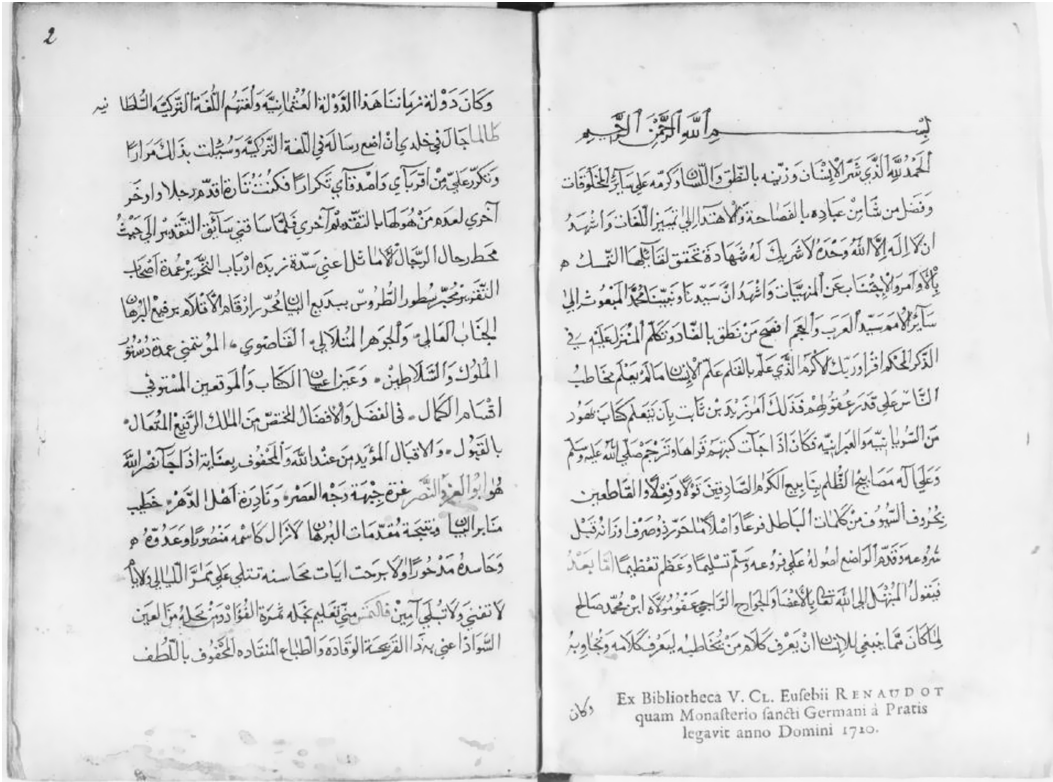 بسم الله الرحمن الرحيم
الحمد لله الذي شرّف الإنسان وزيّنه بالنطق واللسان وكرمه على سائر المخلوقات
وفضل من شا من عباده بالفصاحة والاهتدا إلى تمييز اللغات واشهد
ان لا اله إلا الله وحده لا شريك له شهادة تحقق لقائلها التمسك
بالأوامر والاجتناب عن المنهيات واشهد ان سيدنا ونبينا محمد المبعوث إلى
سائر الأمم سيد العرب والعجم افصح من نطق بالضاد وتكلم المنزل عليه في
الذكر الحكم اقرا وربك الأكرم الذي علم بالقلم علم الإنسان ما لم يعلم مخاطب
الناس على قدر عقولهم فذلك امر زيد بن ثابت بأن يتعلم كتاب يهود
من السريانية والعبرانية فكان اذا جآت كتبهم قراها وترجم صلى الله عليه وسلم
وعلى آله مصابيح الظلم ينابيع الكرم الصادقين قولا وفعلا القاطعين
بحروف السيوف من كلمات الباطل فرعا واصلا ما حرر ذو صرف اوزانه قبل
شروعه وقدم الواضع اصوله على فروعه وسلم تسليما وعظم تعظيما اما بعد
فيقول المبتهل إلى الله تعالى بالأعضا والجوارح الراجي عفو مولاه ابن محمد صالح
لما كان مما ينبغي للإنسان ان يعرف كلام من يخاطبه ليعرف كلامه ويجاوبه
وكان
Ex Bibliotheca V. CL. Eusebii RENAUDOT
quam Monasterio sancti Germani à Pratis
legavit anno Domini 1720.
2
وكان دولة زماننا هذا الدولة العثمانية ولغتهم اللغة التركية السلطانيه
طالما جال في خلدي ان اضع رسالة في اللغة التركية وسئلت بذلك مرارا
وتكرر علي من اقربآي واصدقآي تكرارا فكنت تارة اقدم رجلا واوخر
أخرى لعدم من هو لها بالتقدم أحرى فلما ساقني سائق التقدير الى حيث
محط رحال الرجال الأماثل اعني سدة زبدة ارباب التحرير عمدة اصحاب
التقرير محبر سطور الطروس ببديع البيان محرر ارقام الأقلام برفيع البرهان
الجناب العالي والجوهر المتلالي القاضوي المؤتمني عمدة دستور
الملوك والسلاطين وعين اعيان الكتاب والموقعين المستوفي
اقسام الكمال في الفضل والافضال المختص من الملك الرفيع المتعال
بالقبول والاقبال المؤيد من عند الله والمحفوف بعناية اذا جآ نصر الله
هو ابو العز والنصر غرة جبهة وجه العصر ونادرة اهل الدهر خطيب
منابر البيان ونتيجة مقدمات البرهان لا زال كاسمه منصورا وعدوه
وحاسده مدحورا ولا برحت ايات محاسنه تتلى على ممر الليالي والايام
لا تفنى ولا تبلى آمين فالتمس مني تعليم نجله ثمرة الفؤاد ومن محله من العين
السواد اعني به ذا القريحة الوقاده والطباع المنقاده المحفوف باللطف